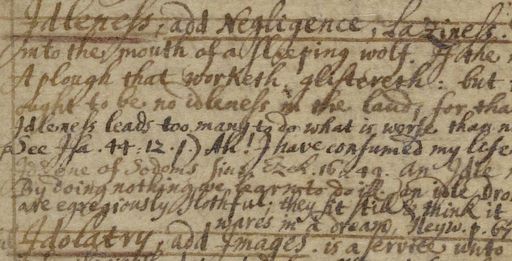 Idleness, add Negligence, Laziness.
into the mouth of a sleeping wolf. If the
A plough that worketh, glistereth: but
ought to be no idleness in the land, for tha
Idleness leads too many to do what is worse than
See Isa. 44.12.) Ah! I have consumed my life
one of Sodoms sins, Ezek. 16.49. an Idle
By doing nothing we learn to do ill. an idle dro
are egregiously slothful; they sit still & think it
wares in a dream, Heyw. p. 67
Idolatry, add Images. is a service unto